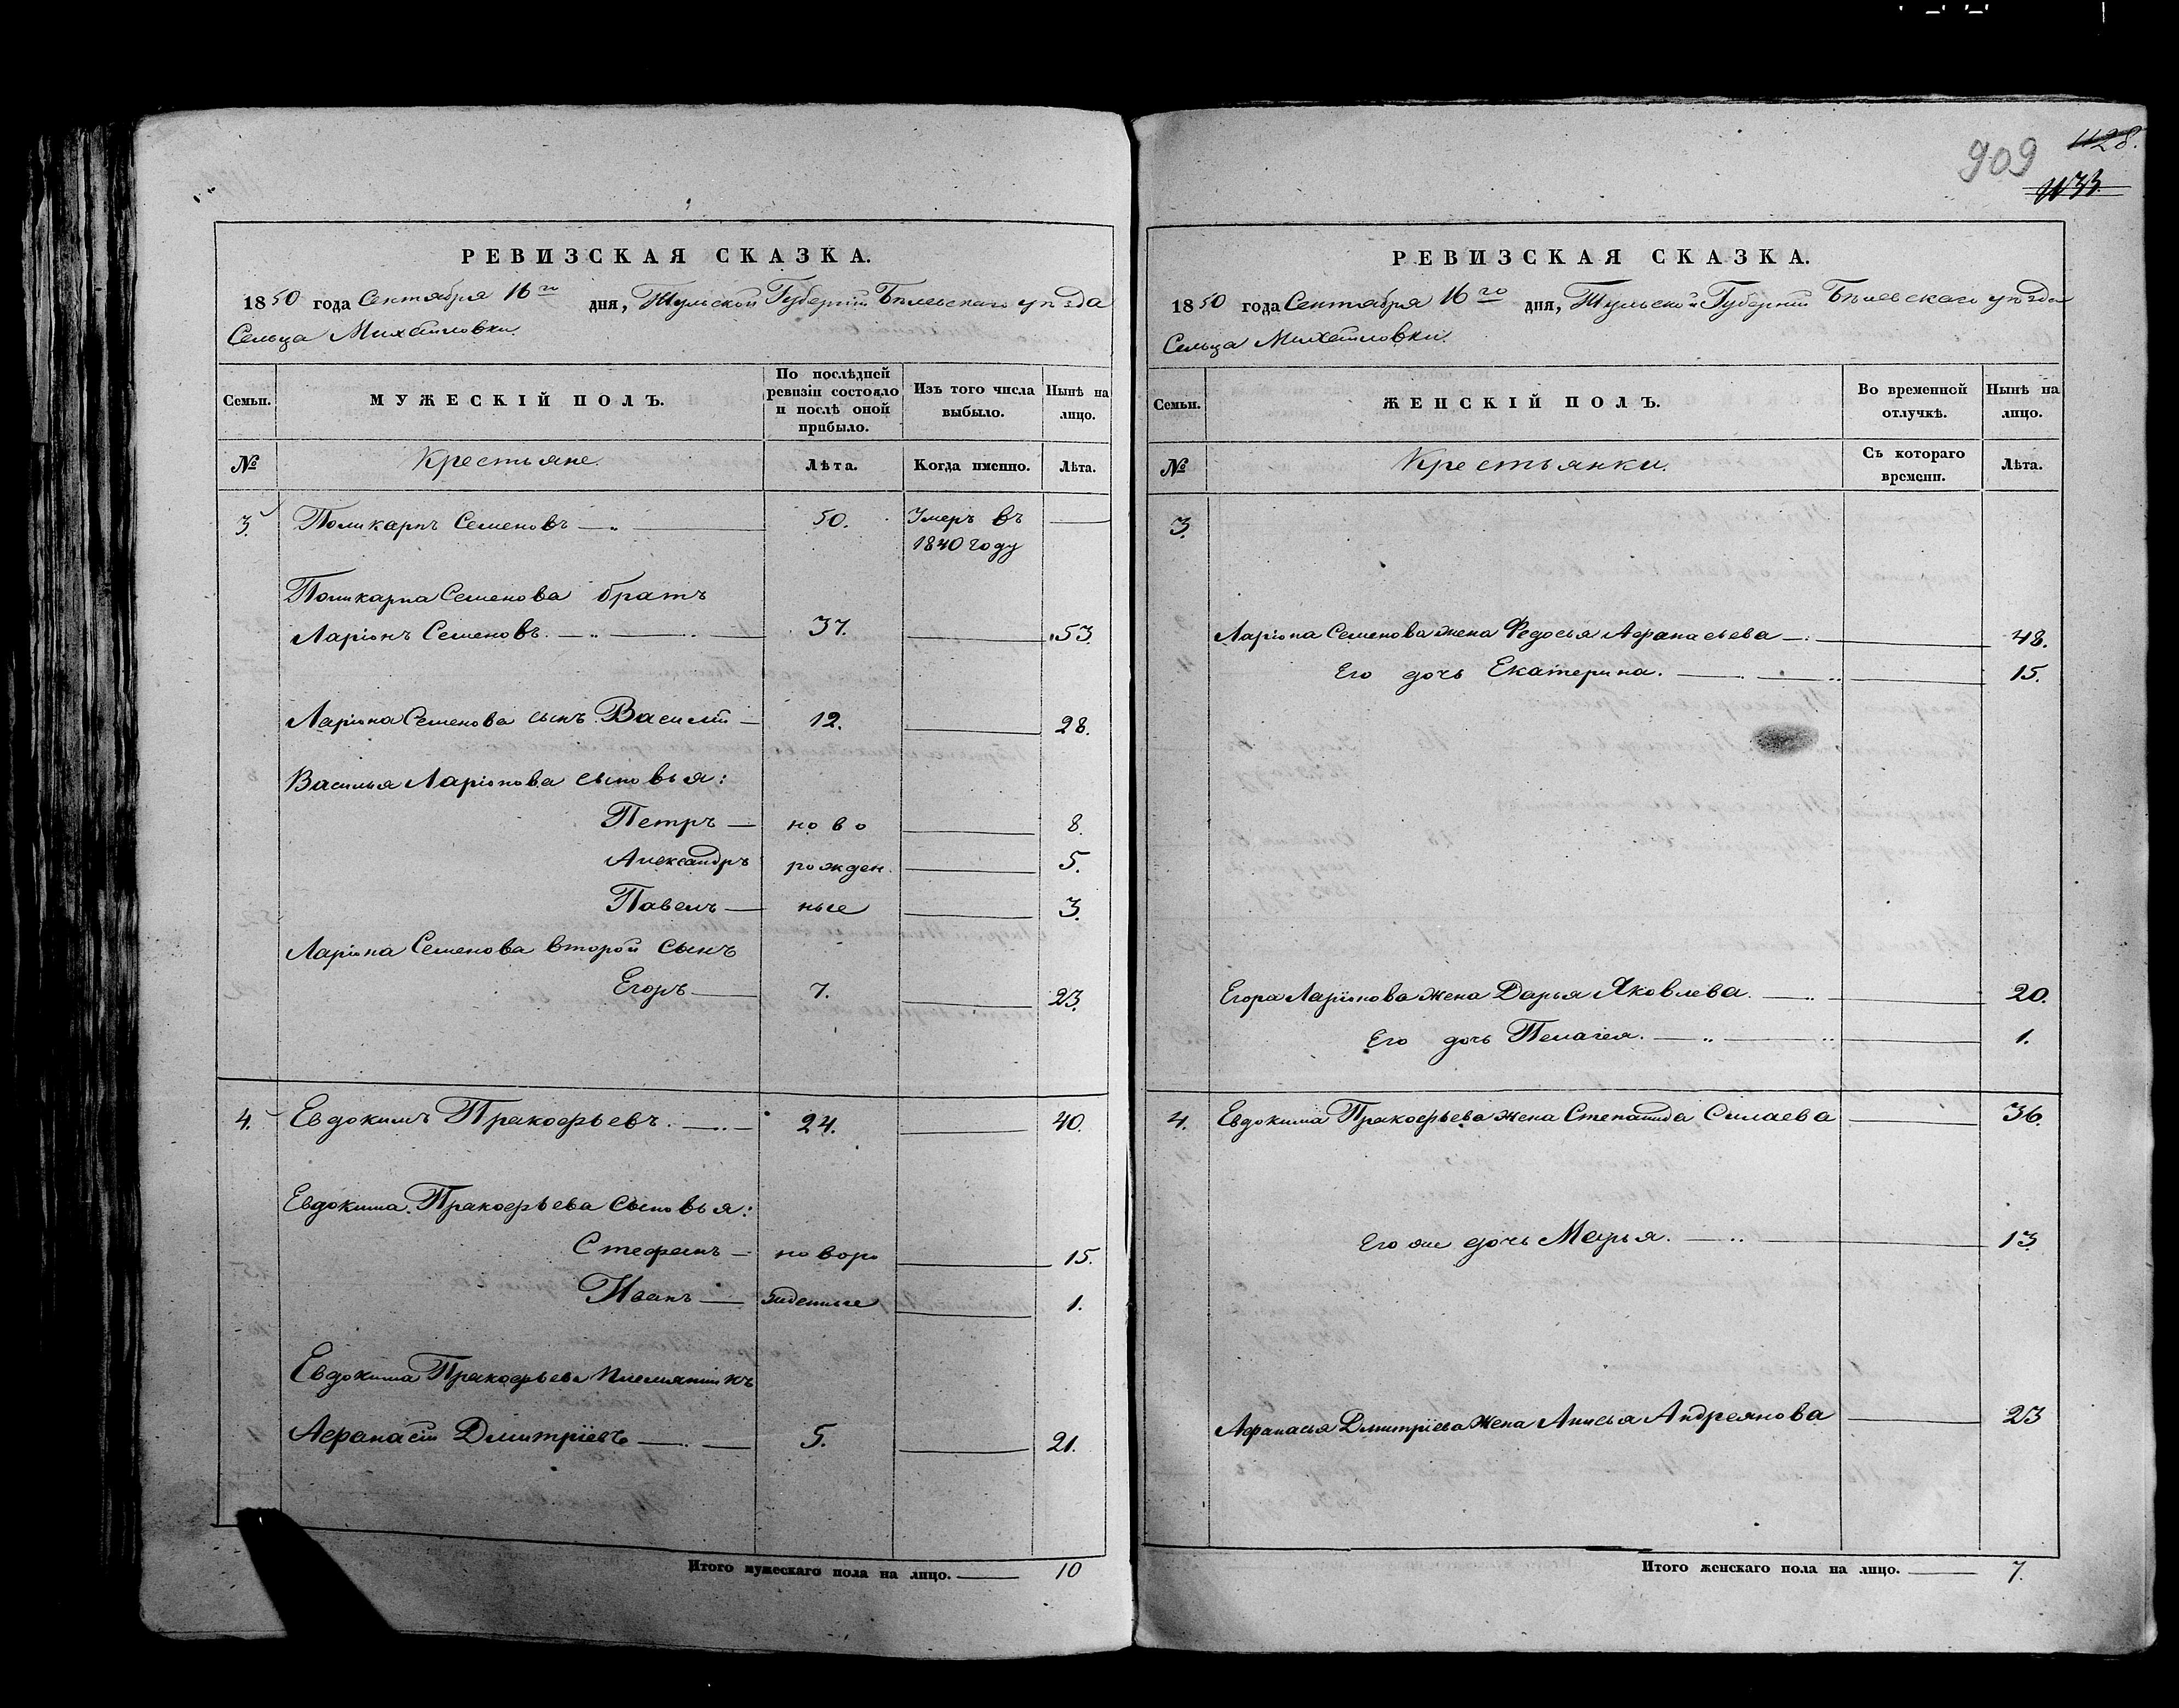 909
1128.
1133.
РЕВИЗСКАЯ СКАЗКА.
1850 года Сентября 16го дня, Тульской Губерніи Бѣлевскаго уѣзда
Сельца Михайловки.
Семьи.
МУЖЕСКІЙ ПОЛЪ.
По послѣдней ревизіи состояло и послѣ оной прибыло.
Изъ того числа выбыло.
Нынѣ на лицо.
№
Крестьяне.
Лѣта.
Когда именно.
Лѣта.
3. Поликарпъ Семеновъ 50. Умеръ въ
1840 году
Поликарпа Семенова братъ
Ларіонъ Семеновъ. 37. 53
Ларіона Семенова сынъ Василій 12. 28.
Василья Ларіонова сыновья:
Петръ ново 8.
Александръ рожден. 5.
Павелъ ные 3.
Ларіона Семенова второй сынъ
Егоръ 7. 23.
4. Евдокимъ Пракофьевъ. 24. 40.
Евдокима Пракофьева сыновья:
Стефанъ новоро 15.
Иванъ жденные 1.
Евдокима Пракофьева племянникъ
Афанасій Дмитріевъ 5. 21.
Итого мужескаго пола на лицо. 10
РЕВИЗСКАЯ СКАЗКА.
1850 года Сентября 16го дня, Тульской Губерніи Бѣлевскаго уѣзда
Сельца Михайловки.
Семьи.
ЖЕНСКІЙ ПОЛЪ.
Во временной отлучкѣ.
Нынѣ на лицо.
№
Крестьянки.
Съ котораго времени.
Лѣта.
3.
Ларіона Семенова жена Федосья Афанасьева 48.
Его дочь Екатерина. 15.
Егора Ларіонова жена Дарья Яковлева. 20.
Его дочь Пелагея. 1.
4. Евдокима Пракофьева жена Степанида Силаева 36.
Его же дочь Марья. 13
Афанасья Дмитріева жена Анисья Андреянова 23
Итого женскаго пола на лицо. 7.